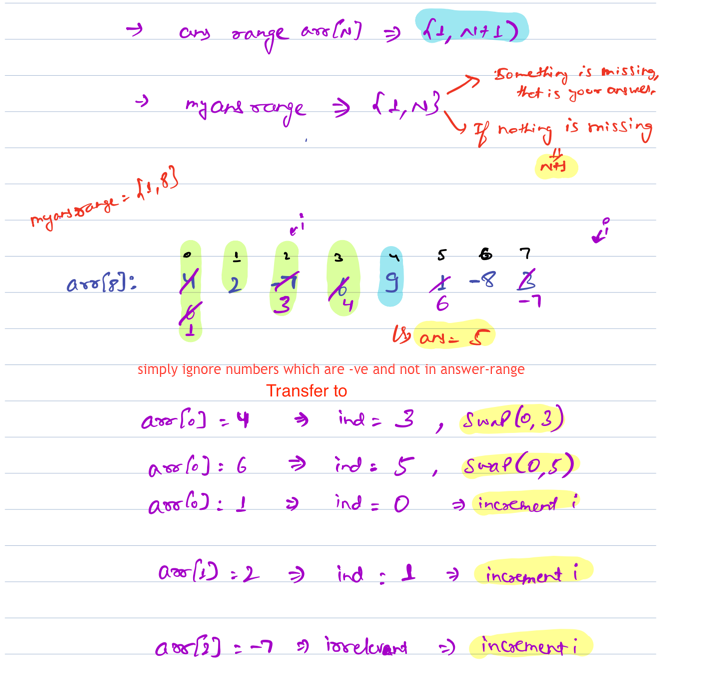 → ans range arr[N] ⇒ {1, N+1)
→ my ans range ⇒ {1,N}
Something is missing, that is your answer.
If nothing is missing
⇓
N+1
my ans range = {1,8}
i
i
0 1 2 3 4 5 6 7
arr[8]: 4 2 -7 6 9 1 -8 3
6 3 4 6 -7
1
↳ ans = 5
simply ignore numbers which are -ve and not in answer-range
Transfer to
arr[0] = 4 ⇒ ind = 3 , swap(0,3)
arr[0] : 6 ⇒ ind = 5 , swap(0,5)
arr[0] : 1 ⇒ ind = 0 ⇒ increment i
arr[1] : 2 ⇒ ind : 1 ⇒ increment i
arr[2] = -7 ⇒ irrelevant ⇒ increment i